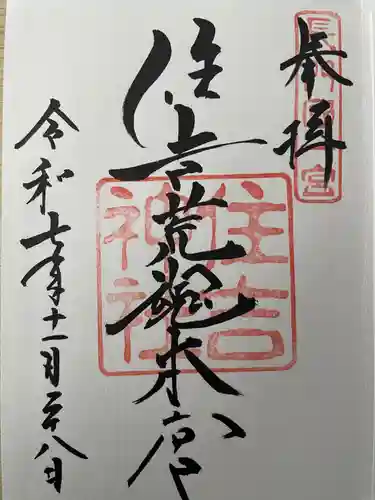 長門國一宮
奉拝
住吉荒魂本宮
住吉神社
令和七年十一月二十八日